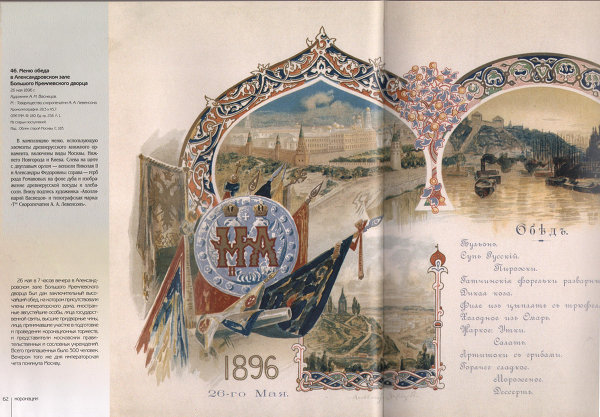 46. Меню обеда
в Александровском зале
Большого Кремлевского дворца
26 мая 1896 г.
Художник А. М. Васнецов
В композицию меню, использующую
элементы древнерусского книжного ор-
намента, включены виды Москвы, Ниж-
него Новгорода и Киева. Слева на щите
с двуглавым орлом — вензеля Николая II
и Александры Федоровны, справа — герб
рода Романовых на фоне дуба и изобра-
жение древнерусской посуды и хлеба-
соли. Внизу подпись художника «Аполли-
нарий Васнецов» и типографская марка
«Т-во Скоропечатни А. А. Левенсон».
26 мая в 7 часов вечера в Александ-
ровском зале Большого Кремлевского
дворца был дан заключительный высо-
чайший обед, на котором присутствовали
члены императорского дома, иностран-
ные августейшие особы, лица государст-
венной свиты, высшие придворные чины,
лица, принимавшие участие в подготовке
и проведении коронационных торжеств,
и представители московских прави-
тельственных и сословных учреждений.
Всего приглашенных было 500 человек.
Вечером того же дня императорская
чета покинула Москву.
62 | коронации
НА
1896
26-го Мая.
Обѣдъ.
Бульонъ.
Супъ Русскій.
Пирожки.
Гатчинскія форельки разварныя
Дикая коза.
Филе изъ цыплятъ съ трюфел
Холодное изъ Омаръ.
Жаркое Утки.
Салатъ.
Артишоки съ грибами.
Горячее сладкое.
Мороженое.
Дессертъ.